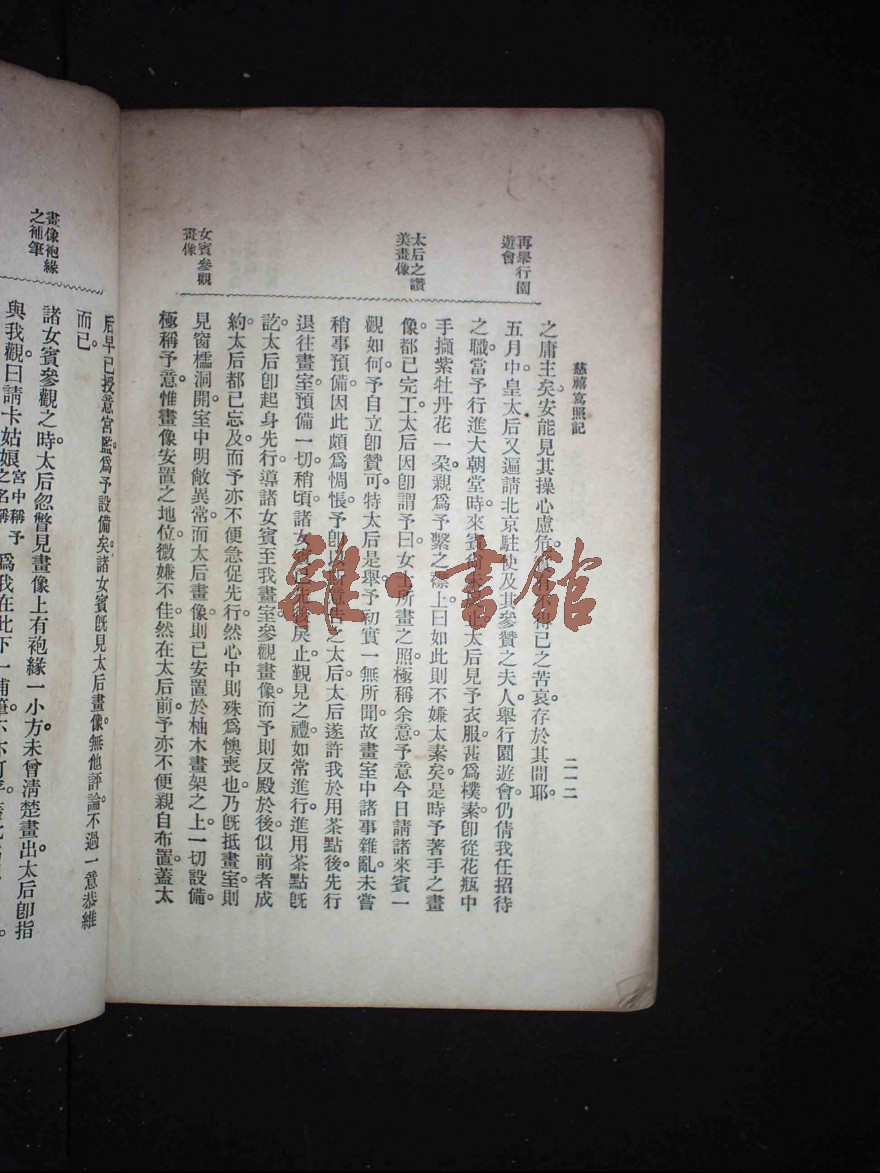 慈禧寫照記
二一二
再舉行園
遊會
太后之讚
美畫像
女賓參觀
畫像
之庸主矣。安能見其操心慮危。得已之苦衷。存於其間耶。
五月中。皇太后又遍請北京駐使及其參贊之夫人。舉行園遊會。仍倩我任招待
之職。當予行進大朝堂時。來賓尚未 太后見予衣服甚爲樸素。卽從花瓶中
手擷紫牡丹花一朶。親爲予繫之襟上。曰如此則不嫌太素矣。是時予著手之畫
像。都已完工。太后因卽謂予曰。女士所畫之照。極稱余意。予意今日請諸來賓一
觀如何。予自立卽贊可。特太后是舉。予初實一無所聞。故畫室中諸事雜亂。未嘗
稍事預備。因此頗爲惆悵。予卽以 意告之太后。太后遂許我於用茶點後。先行
退往畫室。預備一切。稍頃。諸女 已先後戾止。覲見之禮。如常進行。進用茶點旣
訖。太后卽起身先行。導諸女賓至我畫室參觀畫像。而予則反殿於後。似前者成
約。太后都已忘及。而予亦不便急促先行。然心中則殊爲懊喪也。乃旣抵畫室。則
見窗櫺洞開。室中明敞異常。而太后畫像。則已安置於柚木畫架之上。一切設備。
極稱予意。惟畫像安置之地位。微嫌不佳。然在太后前。予亦不便親自布置。蓋太
畫像袍緣
之補筆
后早已授意宮監。爲予設備矣。諸女賓旣見太后畫像。無他評論。不過一意恭維
而已。
諸女賓參觀之時。太后忽瞥見畫像上有袍緣一小方。未曾清楚畫出。太后卽指
與我觀。曰請卡姑娘宮中稱予之名稱爲我在此下一補筆。